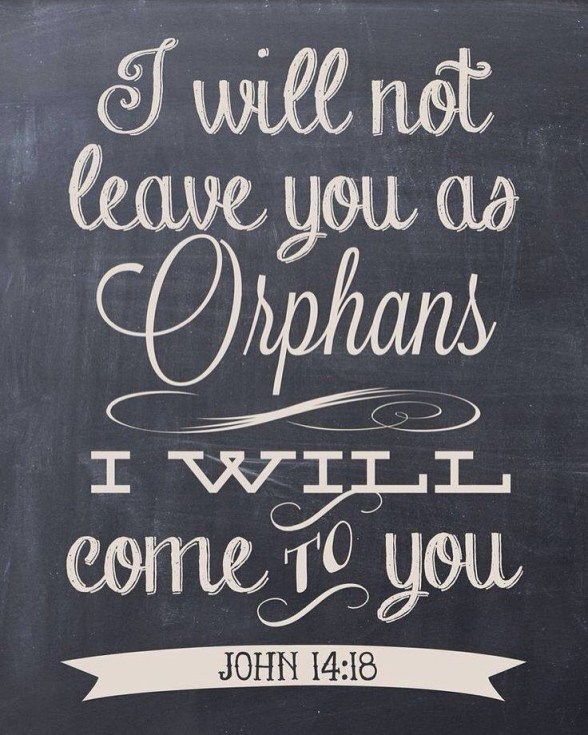 I will not
leave you as
Orphans
I WILL
come TO you
JOHN 14:18